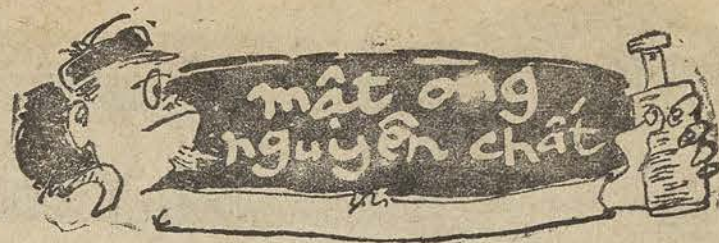 mật ong
nguyên chất